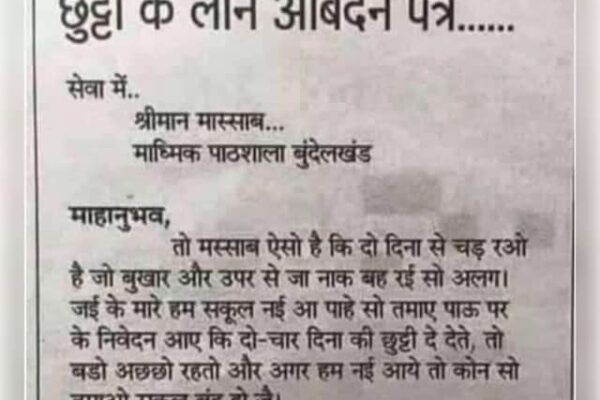 छुट्टी के लाने आबेदन पत्र......
सेवा में..
श्रीमान मास्साब...
माध्मिक पाठशाला बुंदेलखंड
माहानुभव,
तो मस्साब ऐसो है कि दो दिना से चड़ रओ
है जो बुखार और उपर से जा नाक बह रई सो अलग।
जई के मारे हम सकूल नई आ पाहे सो तमाए पाऊ पर
के निवेदन आए कि दो-चार दिना की छुट्टी दे देते, तो
बडो अछछो रहतो और अगर हम नई आये तो कोन सो